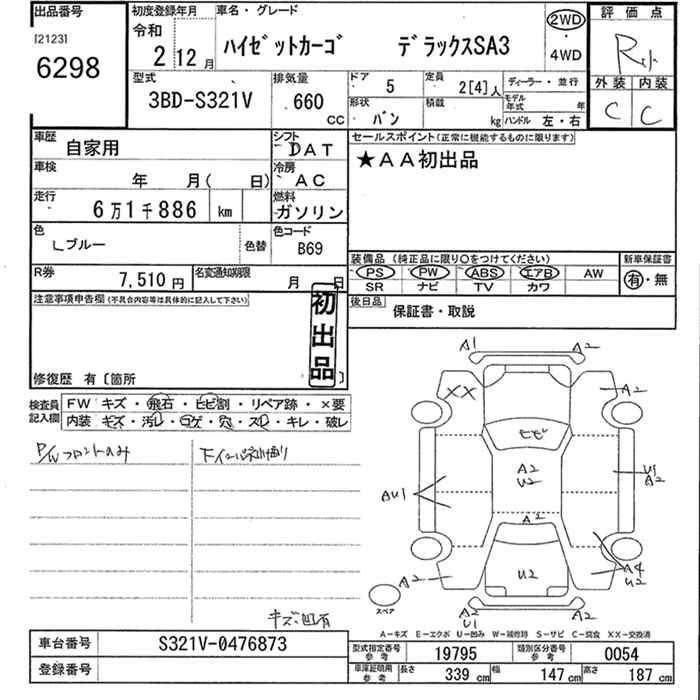 出品番号
[2123]
6298
初度登録年月
令和
2 12月
車名・グレード
ハイゼットカーゴ デラックスSA3
2WD
・
4WD
評価点
R
外装 内装
C C
型式
3BD-S321V
排気量
660
cc
ドア
5
定員
2[4]人
ディーラー・並行
形状
バン
積載
kg
モデル年式 年
ハンドル 左・右
車歴
自家用
シフト
DAT
車検
年 月( 日)
冷房
AC
走行
6万1千886 km
燃料
ガソリン
色
Lブルー
色替
色コード
B69
R券
7,510円
名変通知期限
月 日
セールスポイント(正常に機能するものに限ります)
★AA初出品
装備品(純正品に限り○をつけてください)
PS PW ABS エアB AW
SR ナビ TV カワ
新車保証書
有・無
後日品
保証書・取説
注意事項申告欄(不具合内容等は具体的に記入して下さい)
初出品
修復歴 有〔箇所 〕
検査員記入欄
FW キズ・飛石・ヒビ割・リペア跡・×要
内装 キズ・汚レ・コゲ・穴・スレ・キレ・破レ
P/Wフロントのみ
キズ、凹有
A1 A2
XX A2
ヒビ
A2
U2
U1
A2
AU1
A2
A2
U2
A4
U2
スペア
A2
U1
A2
A−キズ E−エクボ U−凹み W−補修跡 S−サビ C−腐食 XX−交換済
車台番号
S321V-0476873
登録番号
型式指定番号
参考
19795
類別区分番号
参考
0054
車庫証明用
参考
長さ
339 cm
幅
147 cm
高さ
187 cm